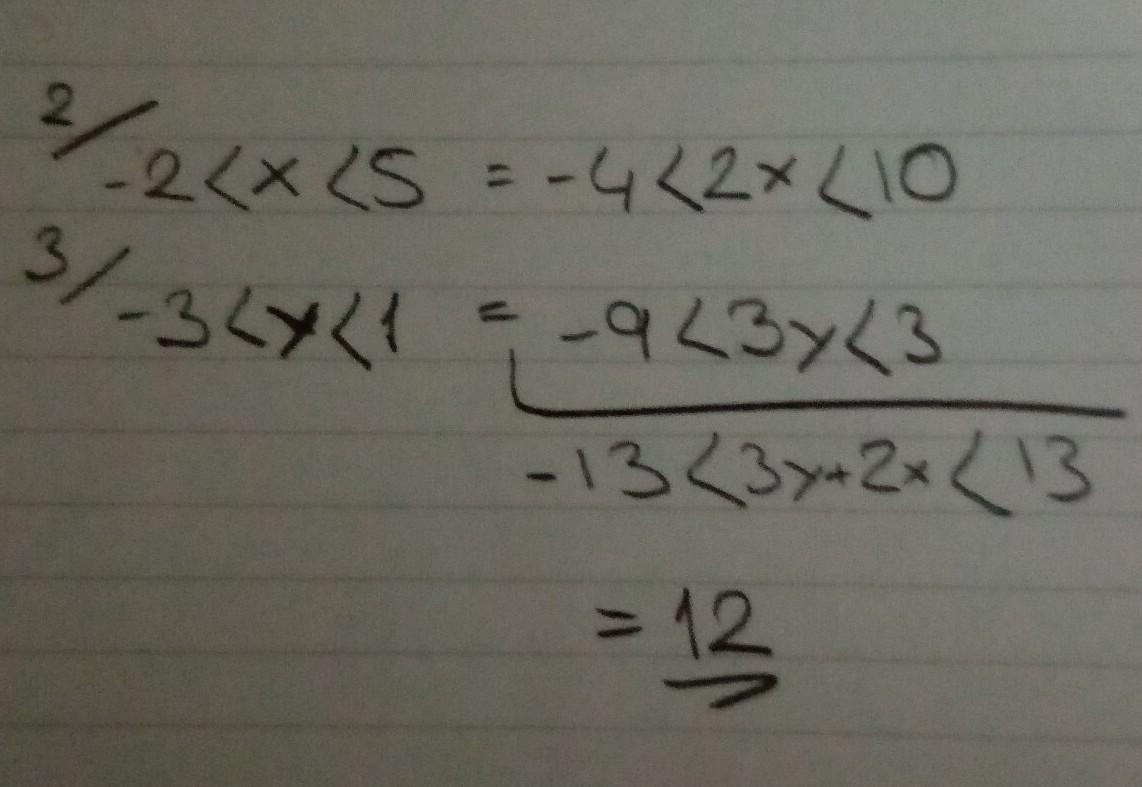 2/
-2<x<5 = -4<2x<10
3/
-3<y<1 = -9<3y<3
-13<3y+2x<13
= 12